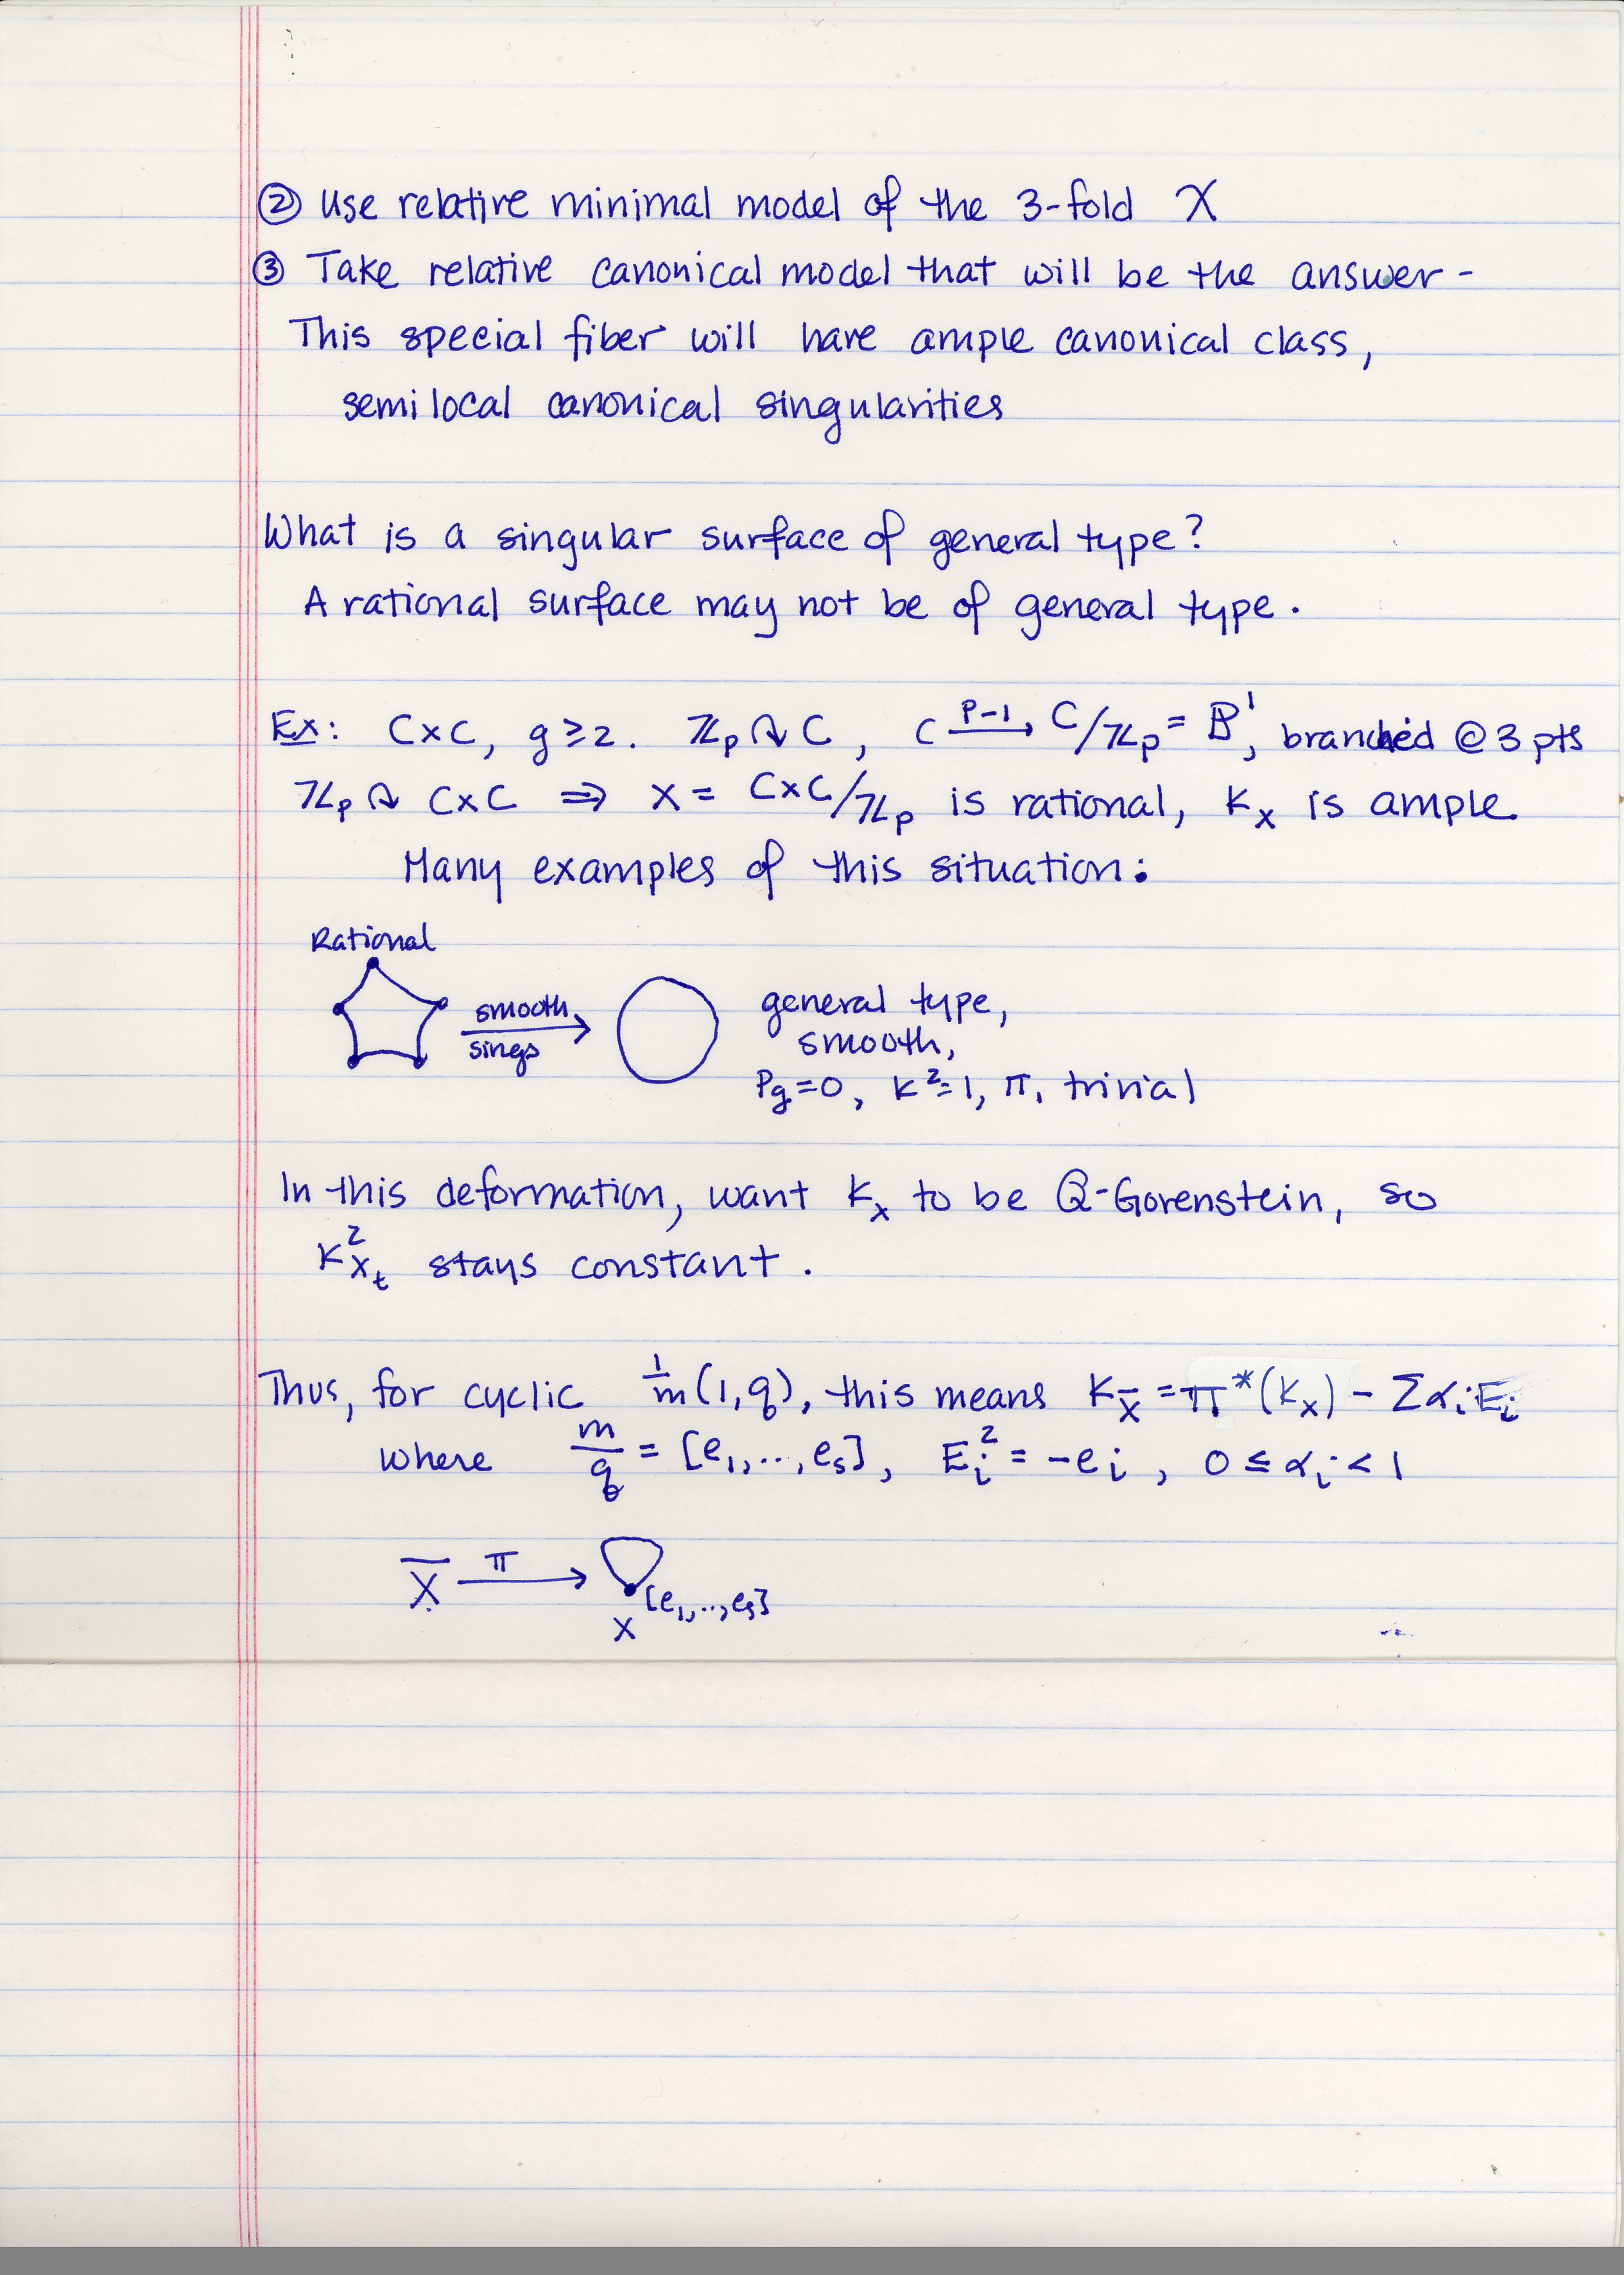 ② Use relative minimal model of the 3-fold X
③ Take relative canonical model that will be the answer -
This special fiber will have ample canonical class,
semilocal canonical singularities
What is a singular surface of general type?
A rational surface may not be of general type.
Ex: C×C, g≥2. ℤp ↷ C, C →^{p-1} C/ℤp = ℙ¹, branched @ 3 pts
ℤp ↷ C×C ⇒ X = C×C/ℤp is rational, K_X is ample.
Many examples of this situation:
Rational
smooth sings → general type, smooth,
Pg=0, K²=1, π₁ trivial
In this deformation, want K_X to be Q-Gorenstein, so
K²_{X_t} stays constant.
Thus, for cyclic 1/m(1,q), this means K_X̄ = π*(K_X) - ΣαᵢEᵢ
where m/q = [e₁,...,eₛ], Eᵢ² = -eᵢ, 0 ≤ αᵢ < 1
X̄ →^π X [e₁,..,eₛ]